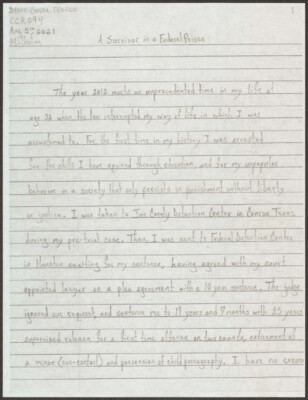 CCR 094
Aug 5th 2021
1
A Survivor in a Federal Prison
The year 2012 marks an unprecedented time in my life at
age 22 when the law interrupted my way of life in which I was
accustomed to. For the first time in my history I was arrested
for the skills I have against through education, and for my unpopular
behavior in a society that only persists in punishment without liberty
or justice. I was taken to Joe Corely Detention Center in Conroe Texas
during my pre-trial case. Then I was sent to Federal Detention Center
in Houston awaiting for my sentence, having agreed with my court
appointed lawyer on a plea agreement with a 10 year sentence. The judge
ignored our request and sentence me to 19 years and 7 months with 25 years
supervised release for a first time offense on two counts, enticement of
a minor (non-contact) and possession of child pornography. I have no